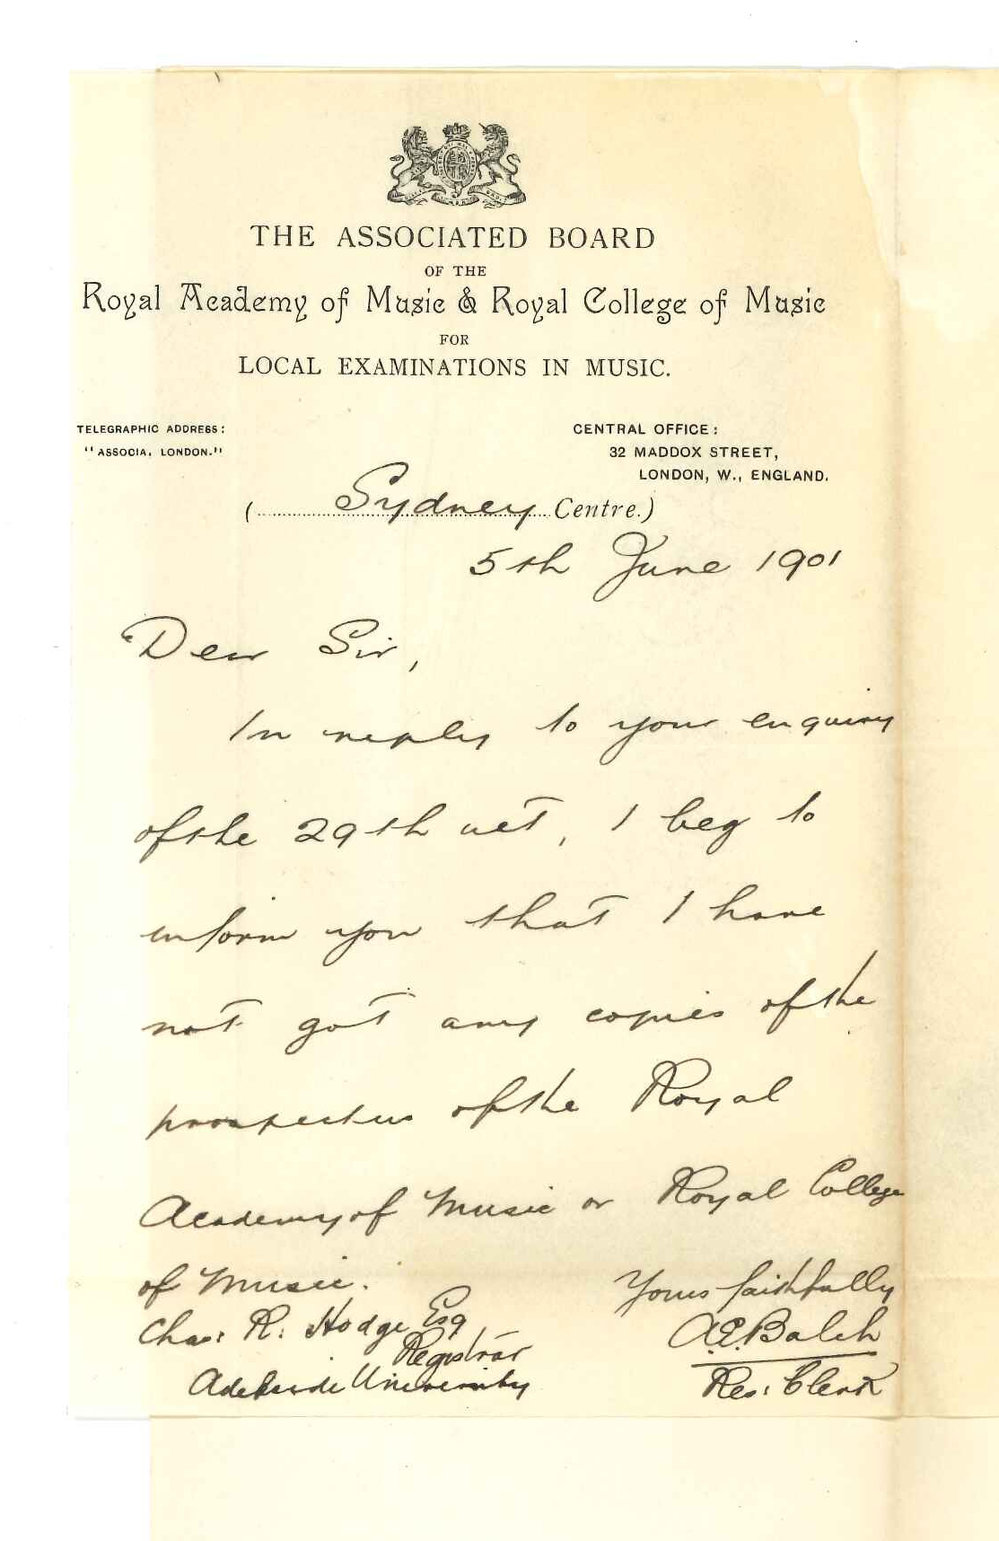 THE ASSOCIATED BOARD
OF THE
Royal Academy of Music & Royal College of Music
FOR
LOCAL EXAMINATIONS IN MUSIC.
TELEGRAPHIC ADDRESS:
"ASSOCIA, LONDON."
CENTRAL OFFICE:
32 MADDOX STREET,
LONDON, W., ENGLAND.
(Sydney Centre.)
5th June 1901
Dear Sir,
In reply to your enquiry
of the 29th ult, I beg to
inform you that I have
not got any copies of the
prospectus of the Royal
Academy of Music or Royal College
of Music.
Yours faithfully
A.E. Balch
Res: Clerk
Chas: R: Hodge Esq
Registrar
Adelaide University